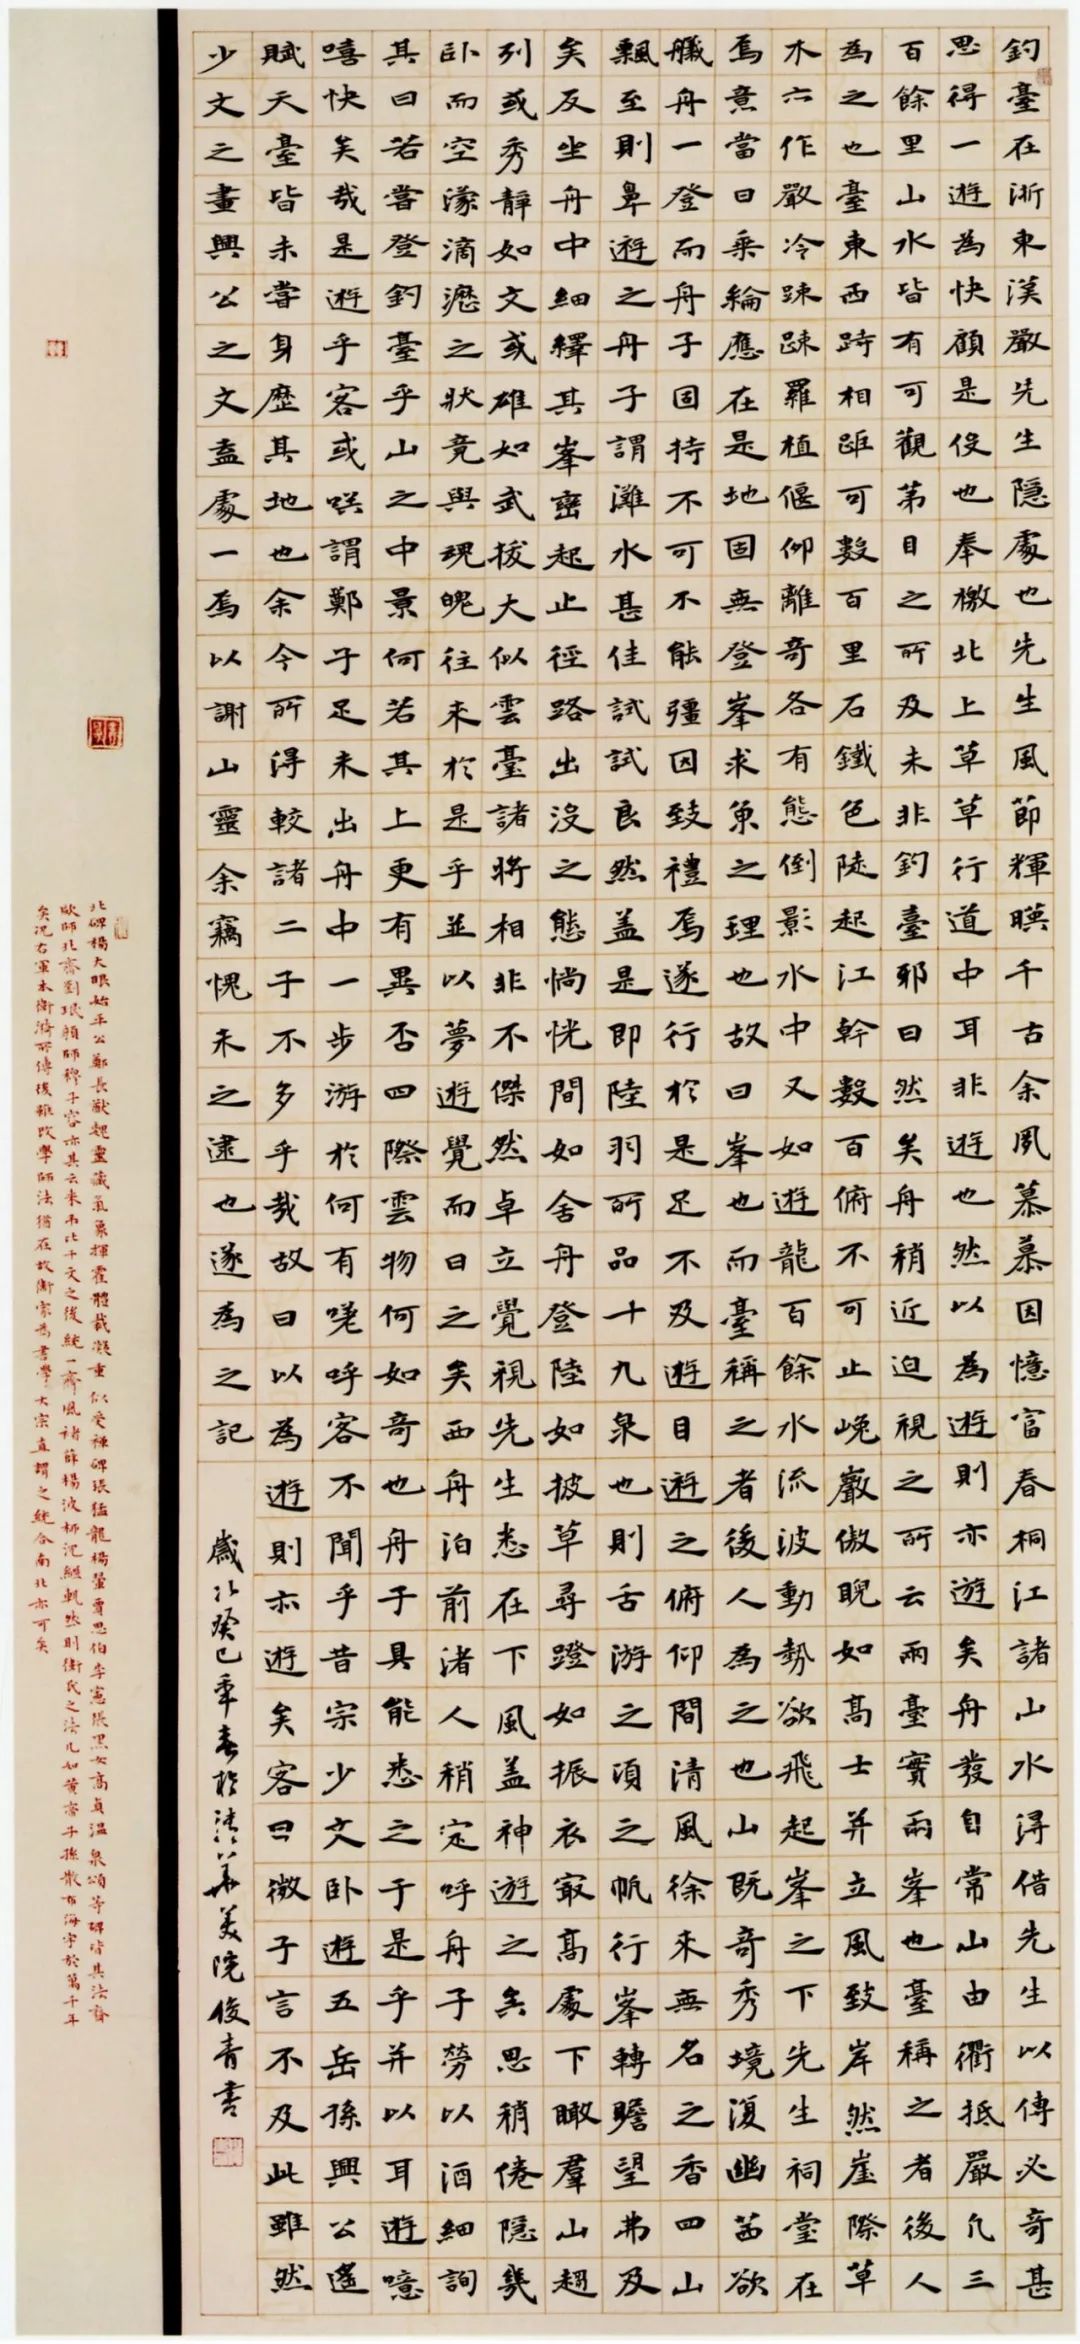 釣臺在浙東漢嚴先生隱處也先生風節輝暎千古余夙慕慕因憶富春桐江諸山水得借先生以傳必奇甚
思得一遊為快顧是役也奉檄北上草草行道中耳非遊也然以為遊則亦遊矣舟發自常山由衢抵嚴凡三
百餘里山水皆有可觀第目之所及未非釣臺耶曰然矣舟稍近迫視之所云兩臺實兩峯也臺稱之者後人
為之也臺東西跱相距可數百里石鐵色陡起江幹數百俯不可止巉巖傲睨如高士并立風致岸然崖際草
木亦作嚴冷疎疎羅植偃仰離奇各有態倒影水中又如遊龍百餘水流波動勢欲飛起峯之下先生祠堂在
焉意當日垂綸應在是地固無登峯求魚之理也故曰峯也而臺稱之者後人為之也山既奇秀境復幽茜欲
艤舟一登而舟子固持不可不能彊因致禮焉遂行於是足不及遊目遊之俯仰間清風徐來無名之香四山
飄至則鼻遊之舟子謂灘水甚佳試試良然蓋是即陸羽所品十九泉也則舌游之頃之帆行峯轉瞻望弗及
矣反坐舟中細繹其峯巒起止徑路出沒之態惝恍間如舍舟登陸如披草尋蹬如振衣最高處下瞰羣山趨
列或秀靜如文或雄如武拔大似雲臺諸將相非不傑然卓立覺視先生悉在下風蓋神遊之矣思稍倦隱几
臥而空濛滴瀝之狀竟與魂魄往來於是乎並以夢遊覺而日之矣西舟泊前渚人稍定呼舟子勞以酒細詢
其曰若嘗登釣臺乎山之中景何若其上更有異否四際雲物何如奇也舟子具能悉之于是乎并以耳遊噫
嘻快矣哉是遊乎客或咲謂鄭子足未出舟中一步游於何有嗟呼客不聞乎昔宗少文臥遊五岳孫興公遙
賦天臺皆未嘗身歷其地也余今所得較諸二子不多乎哉故曰以為遊則亦遊矣客曰微子言不及此雖然
少文之畫興公之文盍處一焉以謝山靈余竊愧未之逮也遂為之記
歲次癸巳年春於清華美院俊青書
北碑楊大眼始平公鄭長猷魏靈藏氣象揮霍體裁凝重似受禪碑張猛龍楊翬賈思伯李憲張黑女高貞溫泉頌等碑皆其法裔
歐師北齊劉珉顏師穆子容亦其云來千文之後統一齊風褚薛楊波柳沈繼軌然則衛氏之法几如黃帝子孫散布海宇於萬千年
矣况右軍本衛漪所傳後雖改學師法猶在故衛家為書學大宗直謂之統合南北亦可矣